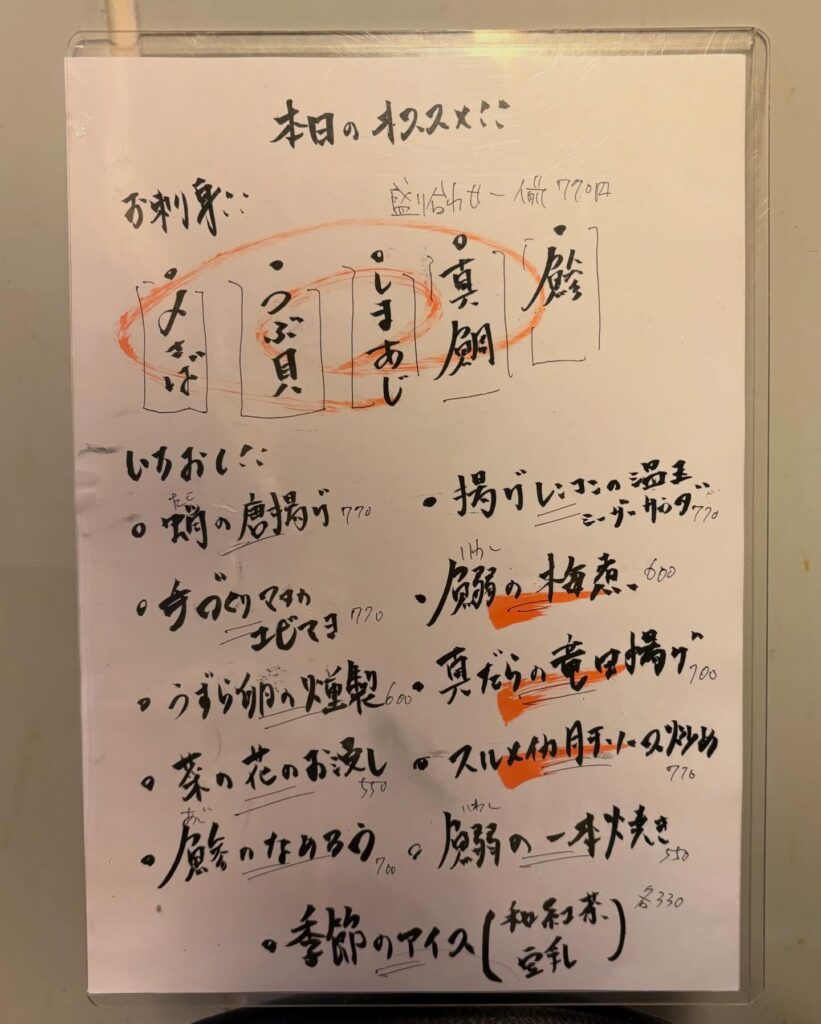 本日のオススメ!!
お刺身!!
盛り合わせ一人前 770円
・鯵
・真鯛
・しまあじ
・つぶ貝
・〆さば
いちおし!!
たこ
・蛸の唐揚げ 770
・手づくりマヨの
エビマヨ 770
・うずら卵の燻製 600
・菜の花のお浸し 550
あじ
・鯵のなめろう 700
・揚げレンコンの温玉
シーザーサラダ 770
いわし
・鰯の梅煮 600
・真だらの竜田揚げ 700
・スルメイカ肝ソース炒め 770
いわし
・鰯の一本焼き 550
・季節のアイス(和紅茶、豆乳) 各330